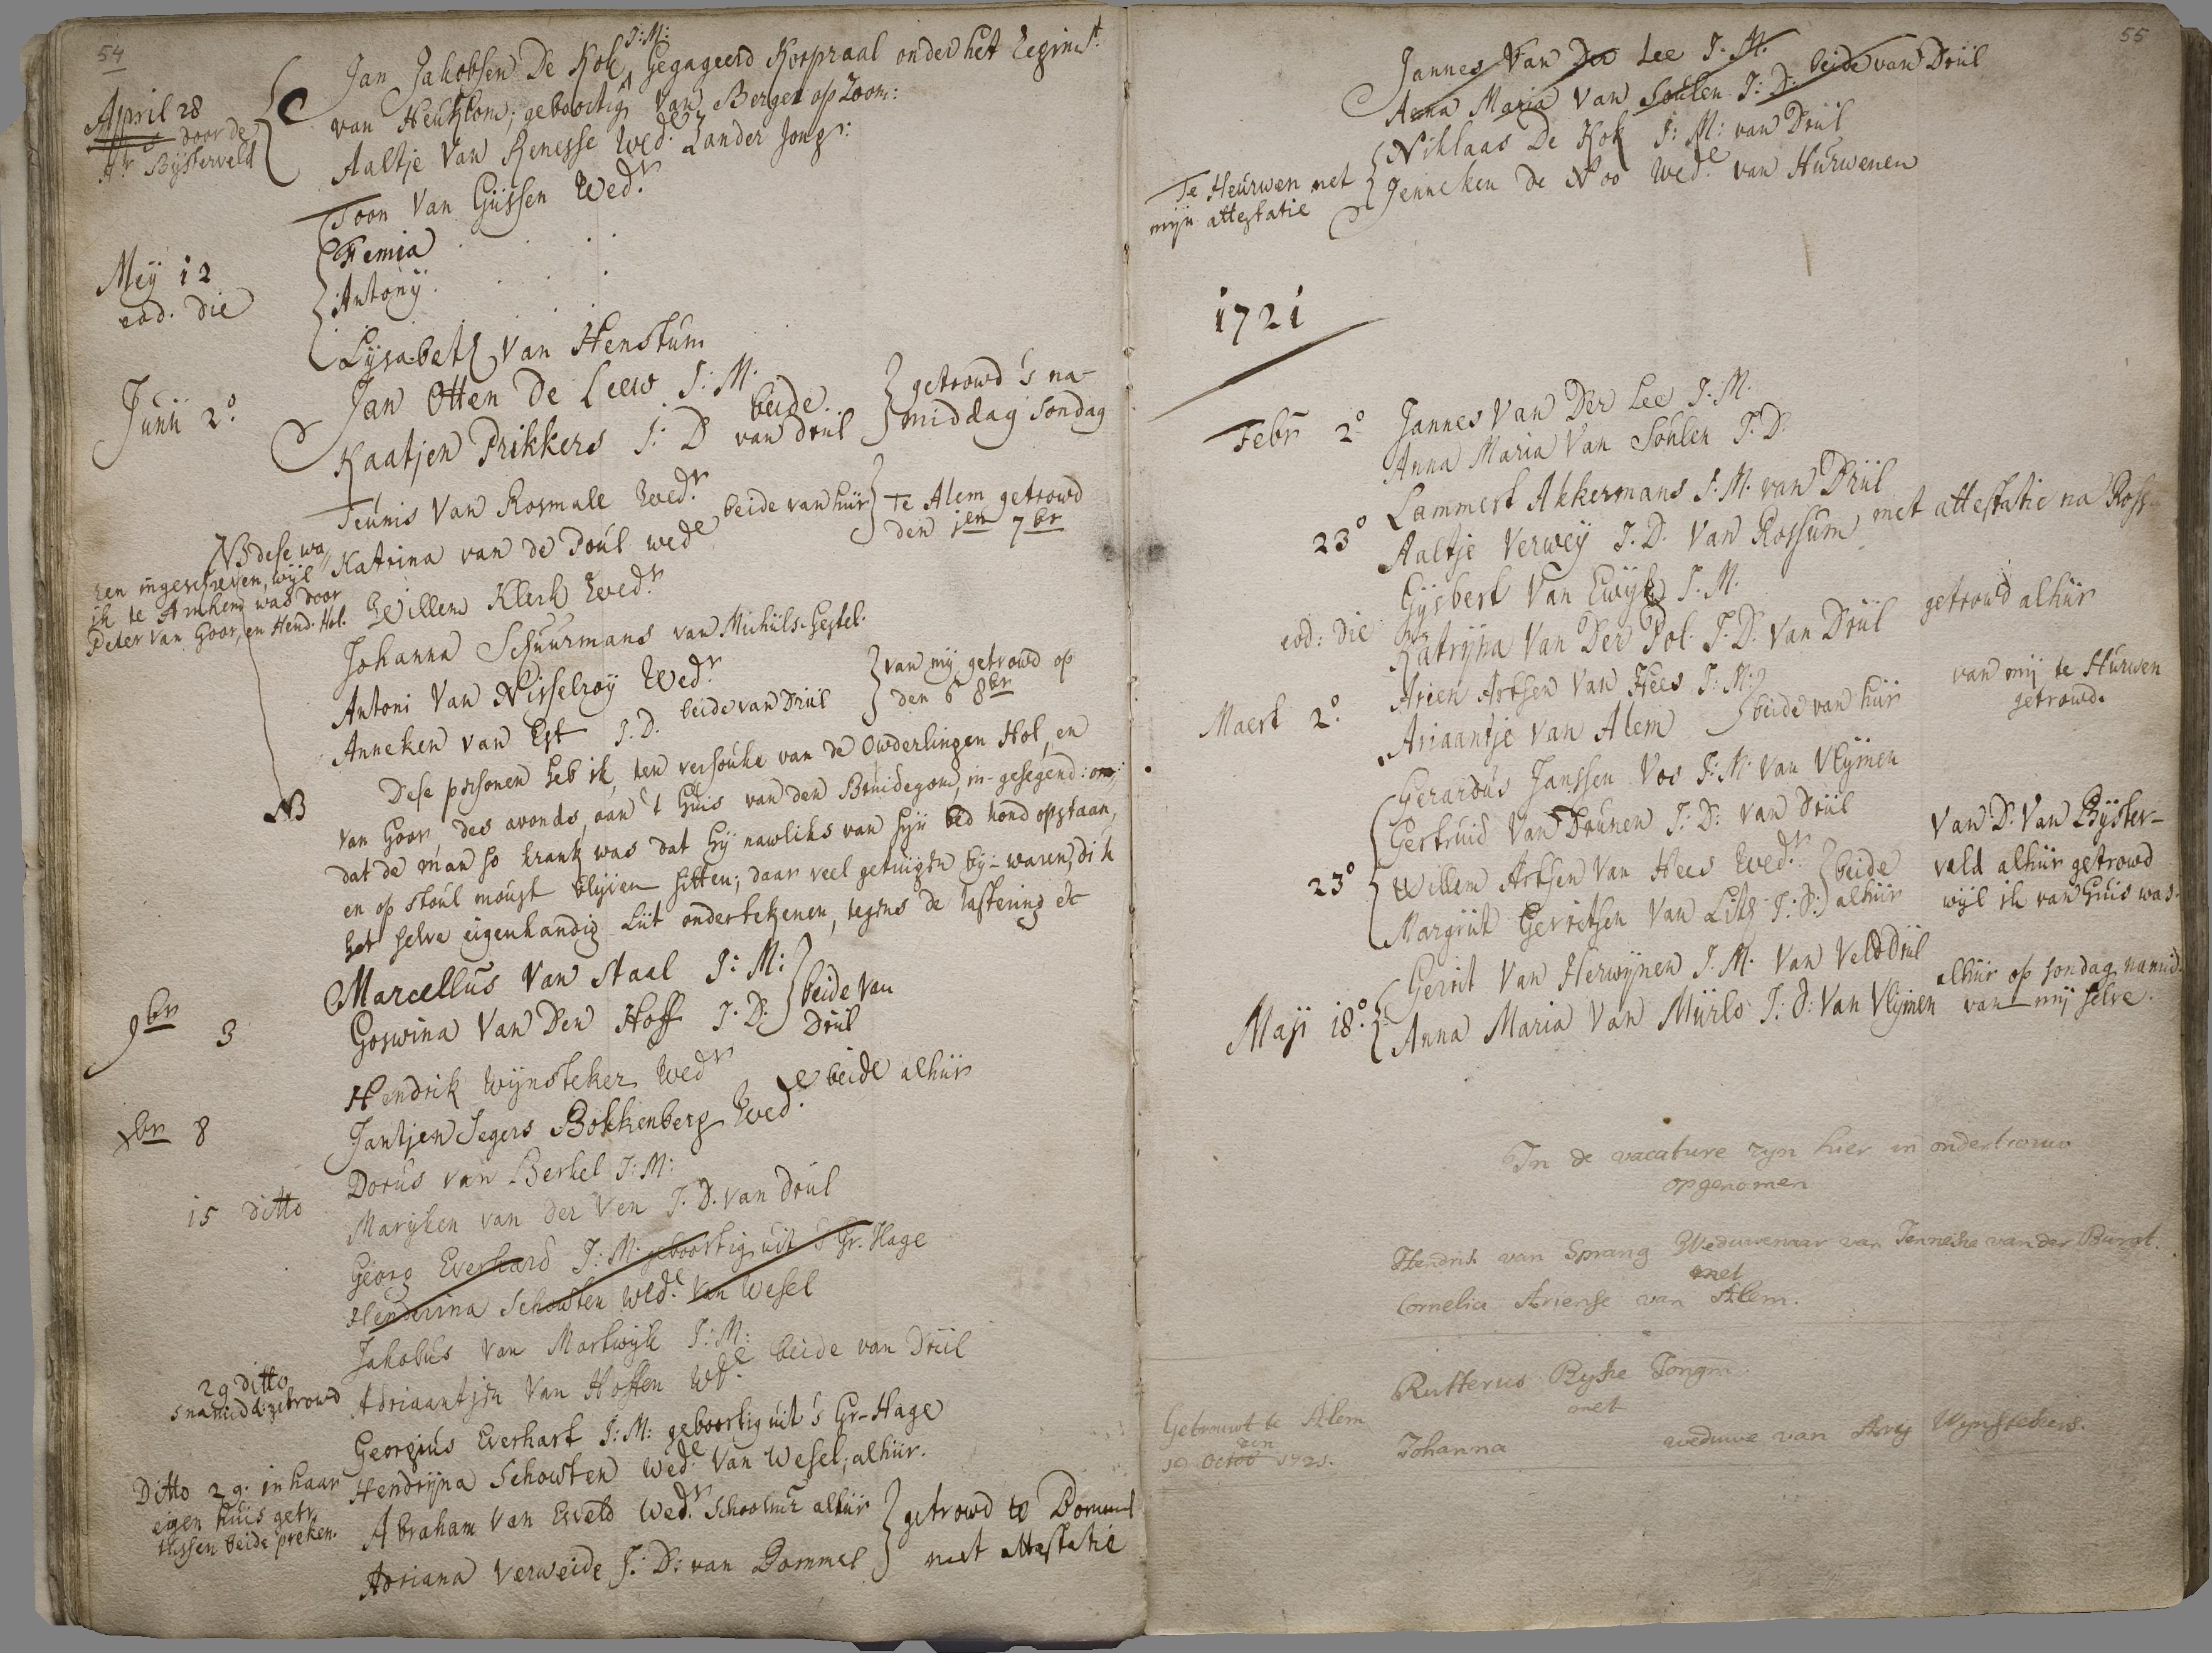 54
April 28
door de
Hr Bijsterveld
Jan Jakobsen De Kok J:M: Gegageerd Korpraal onder het Regimt
van Heuklom; geboortig van Bergen op Zoom:
Aaltje Van Renesse Wede Zander Jong:
Toon Van Gijssen Wedr
Mey 12
Femia
eod. die
Antony
Lysabeth Van Henstum
Junii 2°
Jan Otten De Leew J:M.
Kaatjen Prikkers J:D beide van Driil
getrowd 's na-
middag sondag
Teunis Van Rosmale Wedr.
Katrina van de Poul wede beide van hiir
Te Alem getrowd
den 1en 7br
NB dese wa
ren ingeschreven, wijl
ik te Arnhem was door
Peter van Goor, en Hend. Hol.
Willem Klerk Wedr
Johanna Schuurmans van Michiils-Gestel.
Antoni Van Nisselroy Wedr
Anneken van Est J.D. beide van Driil
van mij getrowd op
den 6 8br
NB
Dese personen heb ik, ten versouke van de Owderlingen Hol, en
van Goor des avonds, aan 't Huis van den Bruidegom, in-gesegend: om
dat de man so krank was dat hij nawliks van sijn bed kond opstaan,
en op stoul moust blijven sitten; daar veel getuigen bij-waren, di ik
het selve eigenhandig liit ondertekenen, tegens de lastering etc
9br 3
Marcellus Van Staal J:M:
Goswina Van Den Hoff J:D:
beide van
Driil
Xbr 8
Hendrik Wijnsteker Wedr
Jantjen Segers Bokkenberg Wede beide alhiir
15 ditto
Dorus van Berkel J:M:
Maryken van der Ven J.D. van Driil
Georg Everhard J:M. geboortig uit 's Gr. Hage
Henderina Schowten Wede Van Wesel
29 ditto
snamidd. getrowd
Jakobus van Martwijk J:M:
Adriaantjen Van Hoften Wde beide van Driil
Georgius Everhart J:M: geboortig uit 's Gr-Hage
Ditto 29. in haar
eigen huis getr.
tussen beide preken.
Hendrijna Schowten Wede Van Wesel, alhiir.
Abraham Van Esveld Wedr. Schoolmr alhiir
Adriana Verweide J:D: van Bommel
getrowd te Bommel
met attestatie
55
Jannes Van Der Lee J:M.
Anna Maria Van Soulen J:D: beide van Driil
Te Heurwen met
mijn attestatie
Niklaas De Kok J:M: van Driil
Jenneken de Roo Wede van Hurwenen
1721
Febr 2°
Jannes Van Der Lee J:M.
Anna Maria Van Soulen J.D.
23°
Lammert Akkermans J.M. van Driil
Aaltje Verwey J.D. Van Rossum met attestatie na Ross
eod: die
Gijsbert Van Ewijk J.M.
Katrijna Van Der Pol. J.D. Van Driil getrowd alhiir
Maert 2°.
Arien Artsen Van Hees J:M:
Ariaantje Van Alem
beide van hiir
van mij te Hurwen
getrowd.
Gerardus Janssen Vos J:M: van Vlijmen
Gertruid Van Drunen J:D: van Driil
23°
Willem Artsen Van Hees Wedr.
Margriit Gerritsen Van Lith J:D:
beide
alhiir
Van D. Van Bijster-
veld alhiir getrowd
wijl ik van Huis was.
Maji 18°.
Gerrit Van Herwijnen J.M. Van Velddriil
Anna Maria Van Mürlo J:D: Van Vlijmen
alhiir op sondag namid.
van mij selve.
In de vacature zyn hier in ondertrouw
opgenomen
Hendrik van Sprang Weduwenaar van Jenneke van der Burgt.
met
Cornelia Ariense van Alem.
Rutterus Ryke Jongm.
met
Johanna weduwe van Arij Wynstekers.
Getrouwt te Alem
den
19 Octob 1721.